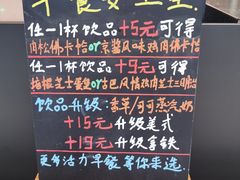 早餐女王
任一杯饮品+5元可得
肉松佛卡恰or京酱风味鸡肉佛卡恰
任一杯饮品+9元可得
芝士蛋堡or古巴风情鸡芝士三明治
饮品升级:香草/可可蒸汽奶
+15元升级美式
+19元升级拿铁
更多活力早餐等你来选